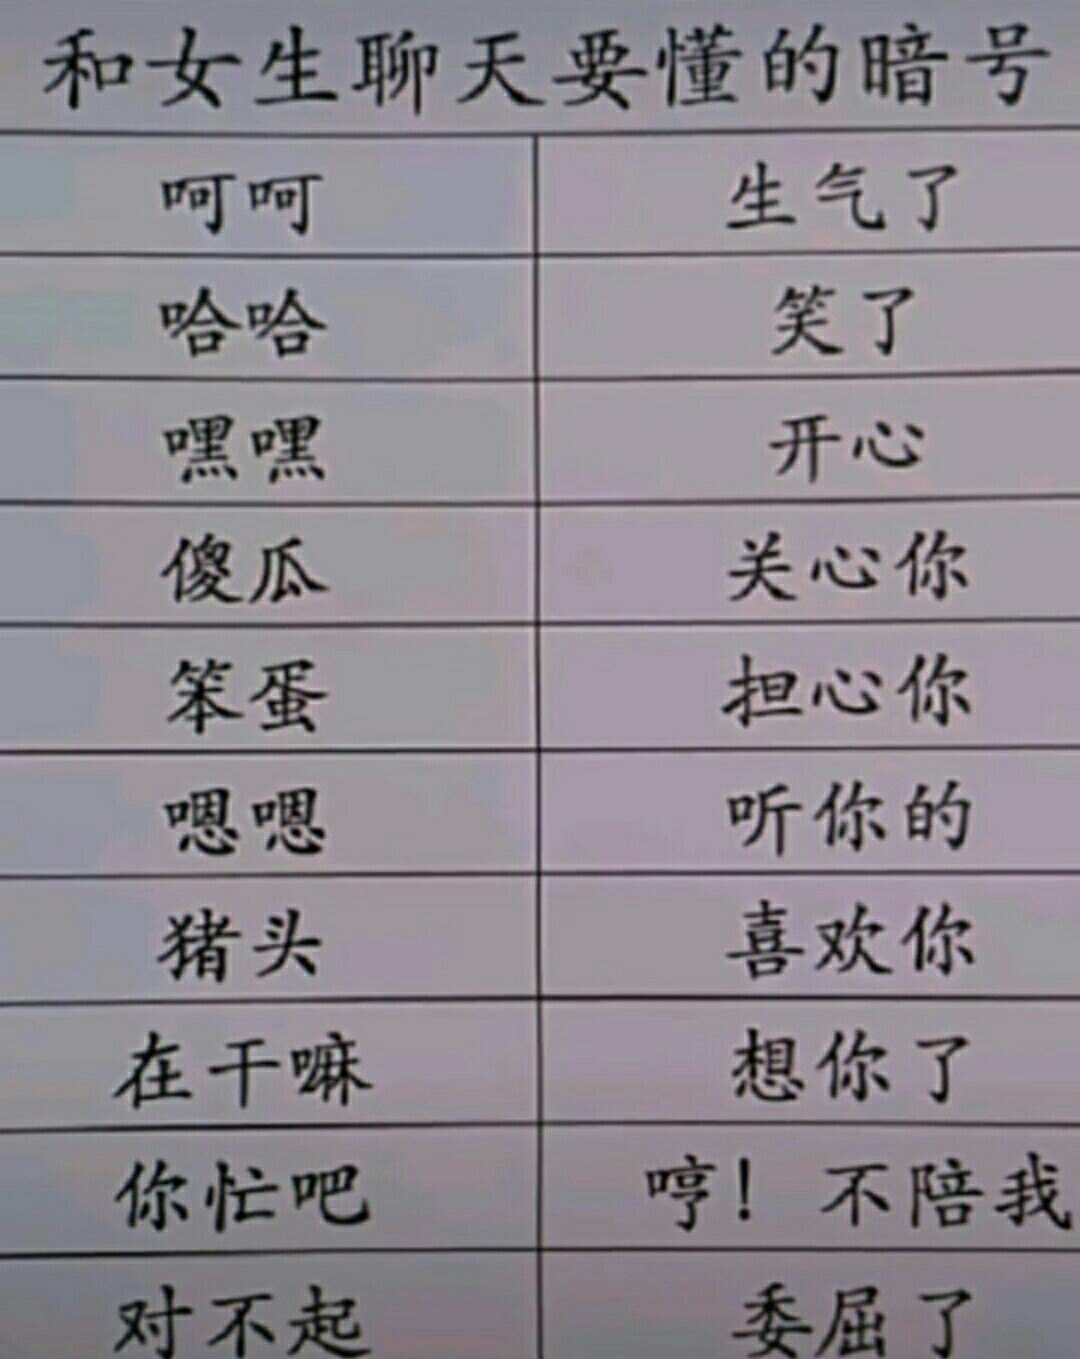 和女生聊天要懂的暗号
呵呵 生气了
哈哈 笑了
嘿嘿 开心
傻瓜 关心你
笨蛋 担心你
嗯嗯 听你的
猪头 喜欢你
在干嘛 想你了
你忙吧 哼！不陪我
对不起 委屈了